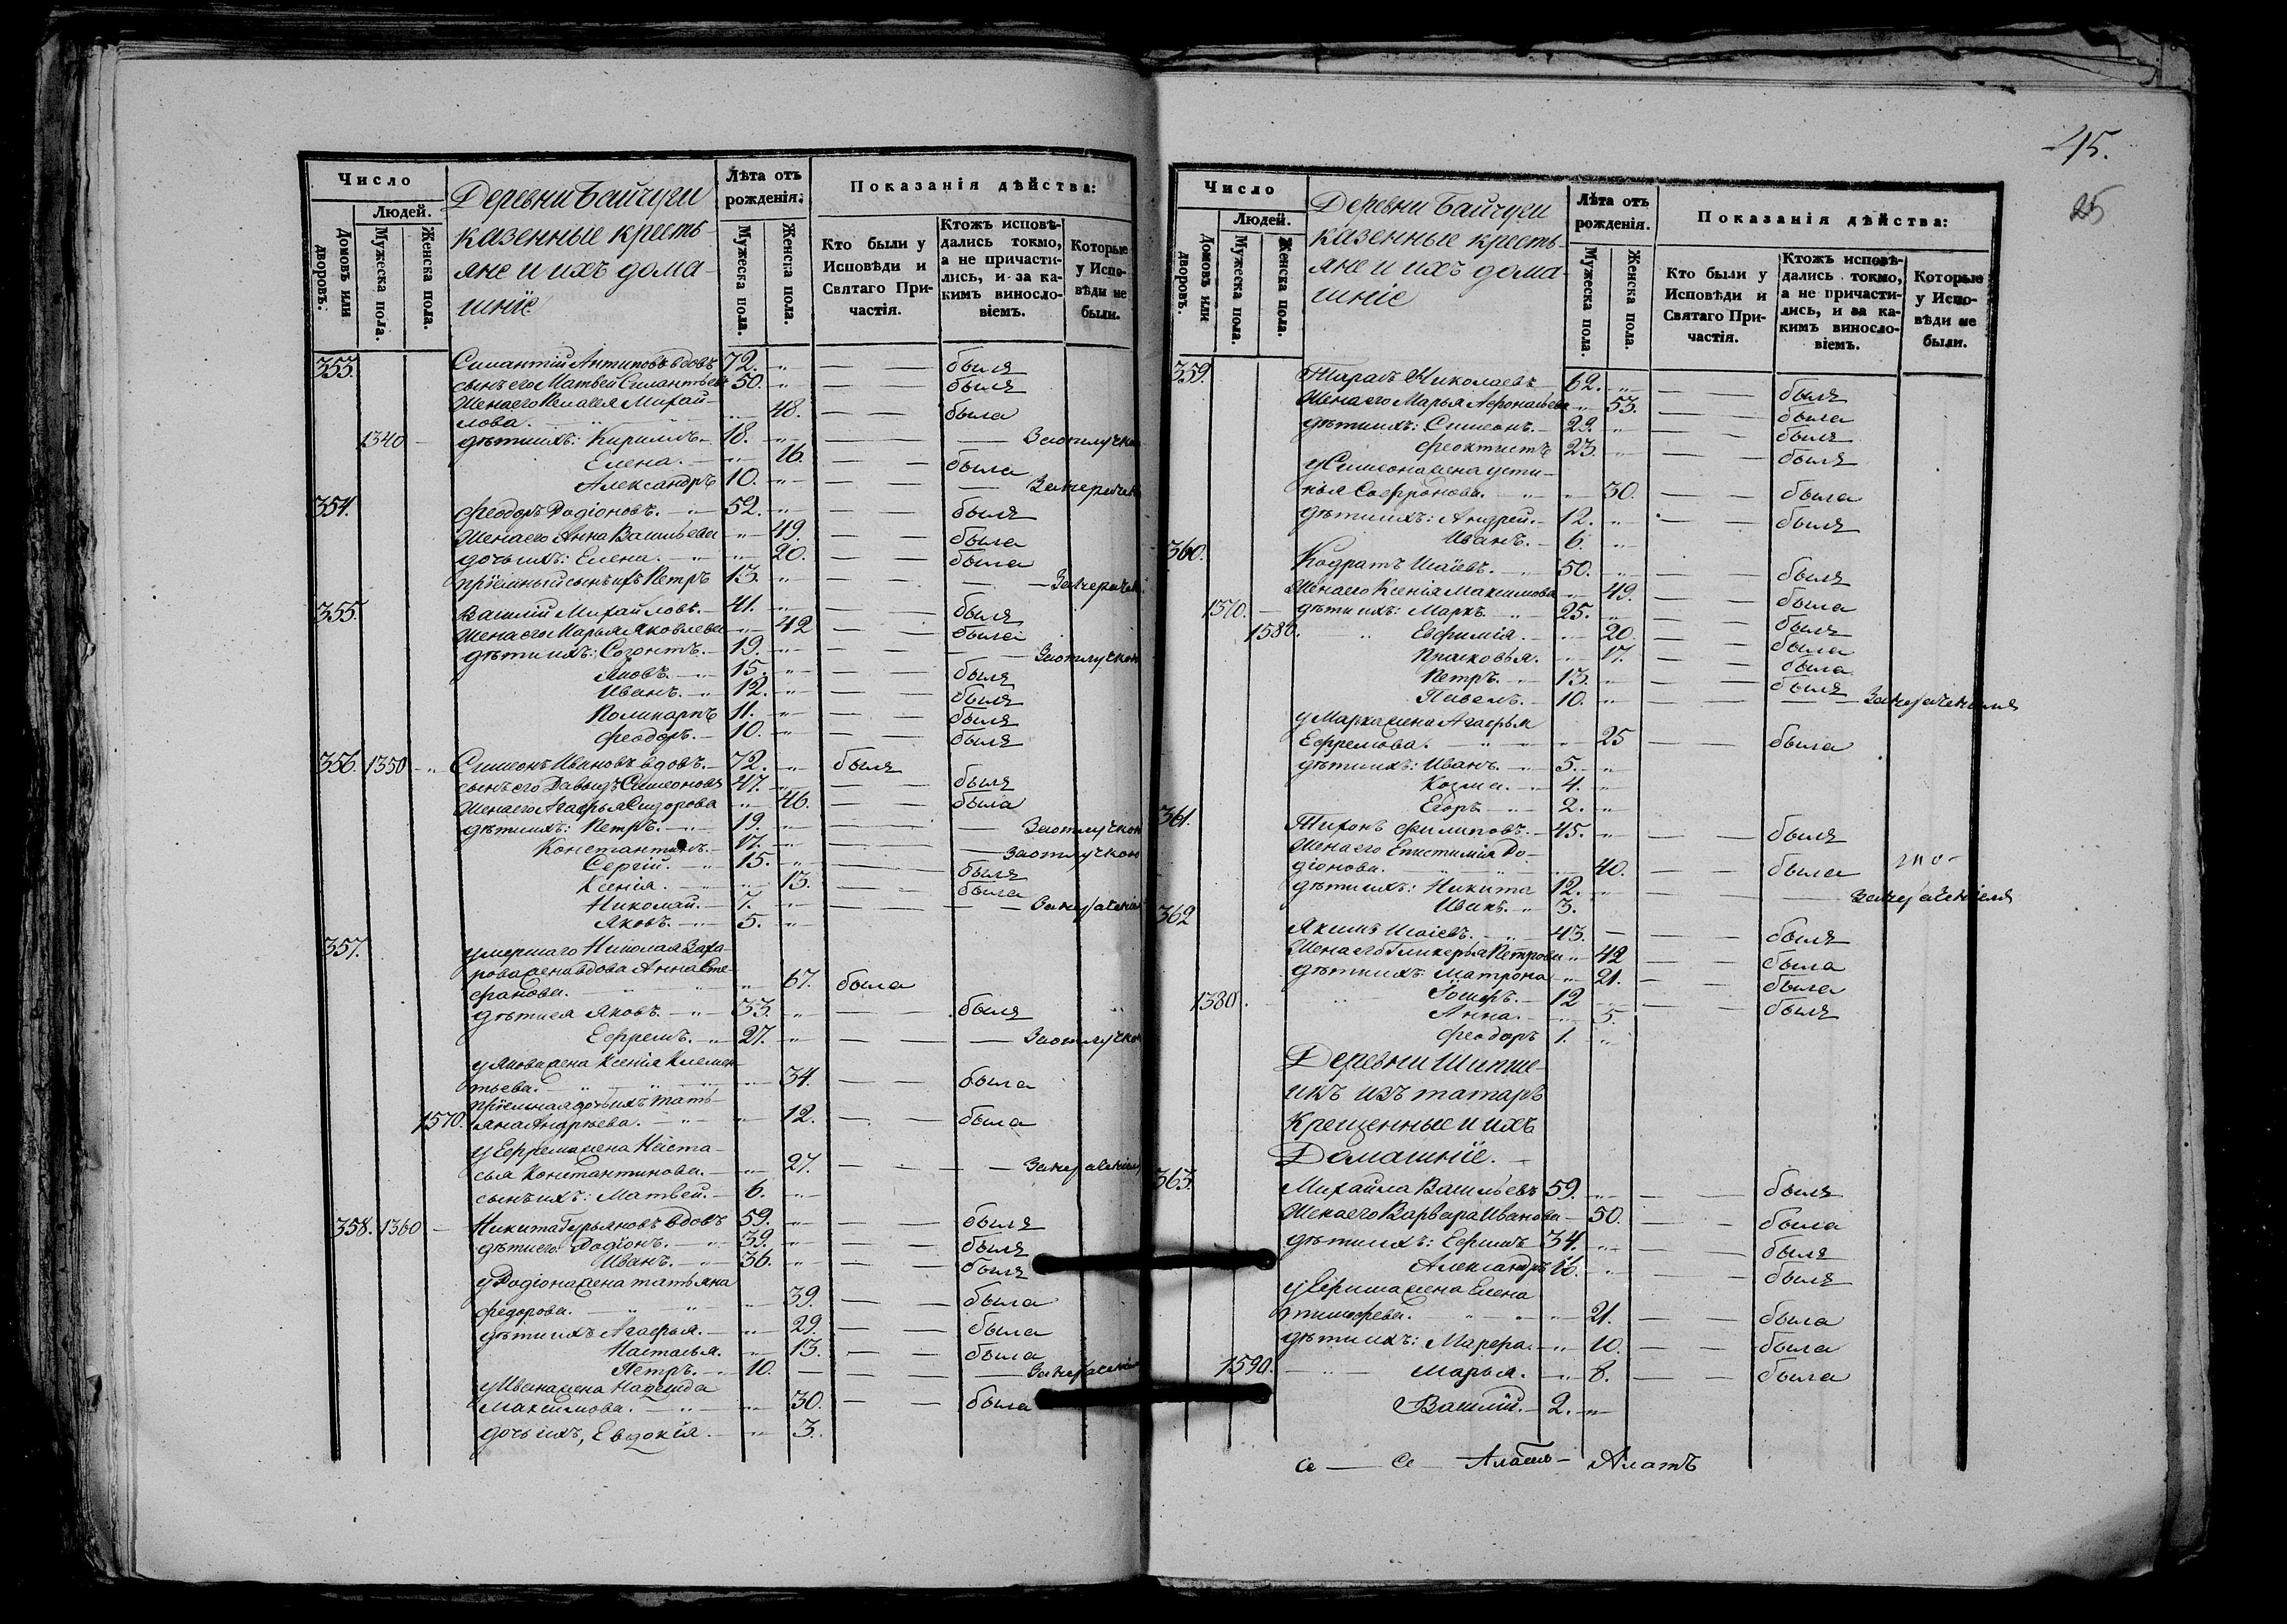 Число
Людей.
Домовъ или дворовъ.
Мужеска пола.
Женска пола.
Деревни Байчуги
казенные кресть-
яне и ихъ дома-
шніе
Лѣта отъ рожденія.
Мужеска пола.
Женска пола.
Показанія дѣйства:
Кто были у Исповѣди и Святаго Причастія.
Ктожъ исповѣдались токмо, а не причастились, и за какимъ винословіемъ.
Которые у Исповѣди не были.
353. Силантій Антиповъ вдовъ 72. былъ
сынъ его Матвей Силантьевъ 50. былъ
жена его Пелагея Михай-
лова. 48. была
1340 дѣти ихъ: Кирилъ. 18. За отлучкою
Елена. 16. была
Александръ 10.
354. Феодоръ Родіоновъ. 52. былъ
жена его Анна Васильева 49. была
дочь ихъ: Елена. 20. была
пріемный сынъ ихъ Петръ 13.
355. Василій Михайловъ. 41. былъ
жена его Марья Яковлева 42 была
дѣти ихъ: Созонтъ. 19. За отлучкою
Яковъ. 15. былъ
Иванъ. 12. былъ
Поликарпъ 11. былъ
Феодоръ. 10. былъ
356. 1350 Симеонъ Ивановъ вдовъ. 72. былъ
сынъ его Давыдъ Симеоновъ 47. былъ
жена его Агафья Сидорова 46. была
дѣти ихъ: Петръ. 19. За отлучкою
Константинъ. 17. За отлучкою
Сергій. 15. былъ
Ксенія. 13. была
Николай. 7.
Яковъ. 5.
357. умершаго Николая Заха-
рова жена вдова Анна Сте-
фанова. 67. была
дѣти ея Яковъ. 33. былъ
Ефремъ. 27. За отлучкою
у Якова жена Ксенія Клемен-
тьева. 34. была
пріемная дочь ихъ Тать-
1570. яна Андреева. 12. была
у Ефрема жена Наста-
сья Константинова. 27.
сынъ ихъ: Матвей. 6.
358. 1360 Никита Гурьяновъ вдовъ 59. былъ
дѣти его Родіонъ. 39. былъ
Иванъ. 36. былъ
у Родіона жена Татьяна
Федорова. 39. была
дѣти ихъ Агафья. 29. была
Настасья. 13. была
Петръ. 10.
у Ивана жена Надежда
Максимова. 30. была
дочь ихъ, Евдокія. 3.
45.
25
Число
Людей.
Домовъ или дворовъ.
Мужеска пола.
Женска пола.
Деревни Байчуги
казенные кресть-
яне и ихъ дома-
шніе
Лѣта отъ рожденія.
Мужеска пола.
Женска пола.
Показанія дѣйства:
Кто были у Исповѣди и Святаго Причастія.
Ктожъ исповѣдались токмо, а не причастились, и за какимъ винословіемъ.
Которые у Исповѣди не были.
359. Тарасъ Николаевъ 62. былъ
жена его Марья Афонасьева 53. была
дѣти ихъ: Симеонъ. 29. былъ
Феоктистъ 23. былъ
у Симеона жена Усти-
нья Софронова. 30. была
дѣти ихъ: Андрей. 12. былъ
Иванъ. 6.
360. Кодратъ Исаевъ. 50. былъ
жена его Ксенія Максимова 49. была
1370. дѣти ихъ: Маркъ. 25. былъ
1580. Евфимія. 20. была
Прасковья. 17. была
Петръ. 13. былъ
Павелъ. 10.
у Марка жена Агафья
Ефремова. 25 была
дѣти ихъ: Иванъ. 5.
Козма. 4.
Егоръ 2.
361. Тихонъ Филиповъ. 45. былъ
жена его Епистимія Ро-
діонова. 40. была
дѣти ихъ: Никита 12.
Иванъ. 3.
362 Якимъ Исаевъ. 43. былъ
жена его Гликерья Петрова 42 была
дѣти ихъ: Матрона 21. была
1380. 12 былъ
Анна. 5.
Феодоръ 1.
Деревни
изъ татаръ
крещенные и ихъ
Домашніе.
363. Михайла Васильевъ 59. былъ
жена его Варвара Иванова 50. была
дѣти ихъ: Ефимъ 34. былъ
Александръ 16. былъ
у Ефима жена Елена
Тимофеева. 21. была
дѣти ихъ: Марфа. 10. была
1590. Марья. 8. была
Василій. 2.